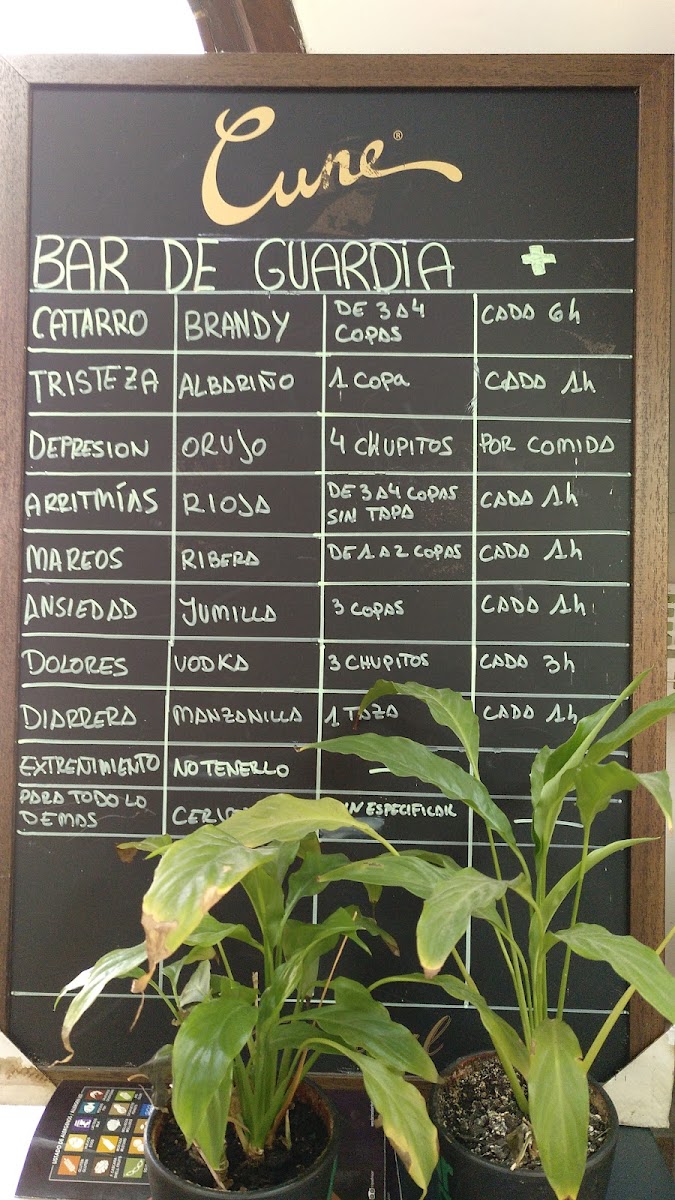 Cune®
BAR DE GUARDIA +
CATARRO BRANDY DE 3 A 4 COPAS CADA 6h
TRISTEZA ALBARIÑO 1 COPA CADA 1h
DEPRESION ORUJO 4 CHUPITOS POR COMIDA
ARRITMÍAS RIOJA DE 3 A 4 COPAS SIN TAPA CADA 1h
MAREOS RIBERA DE 1 A 2 COPAS CADA 1h
ANSIEDAD JUMILLA 3 COPAS CADA 1h
DOLORES VODKA 3 CHUPITOS CADA 3h
DIARRERA MANZANILLA 1 TAZA CADA 1h
EXTRENTIMIENTO NO TENERLO —
PARA TODO LO DEMAS ESPECIFICAR —